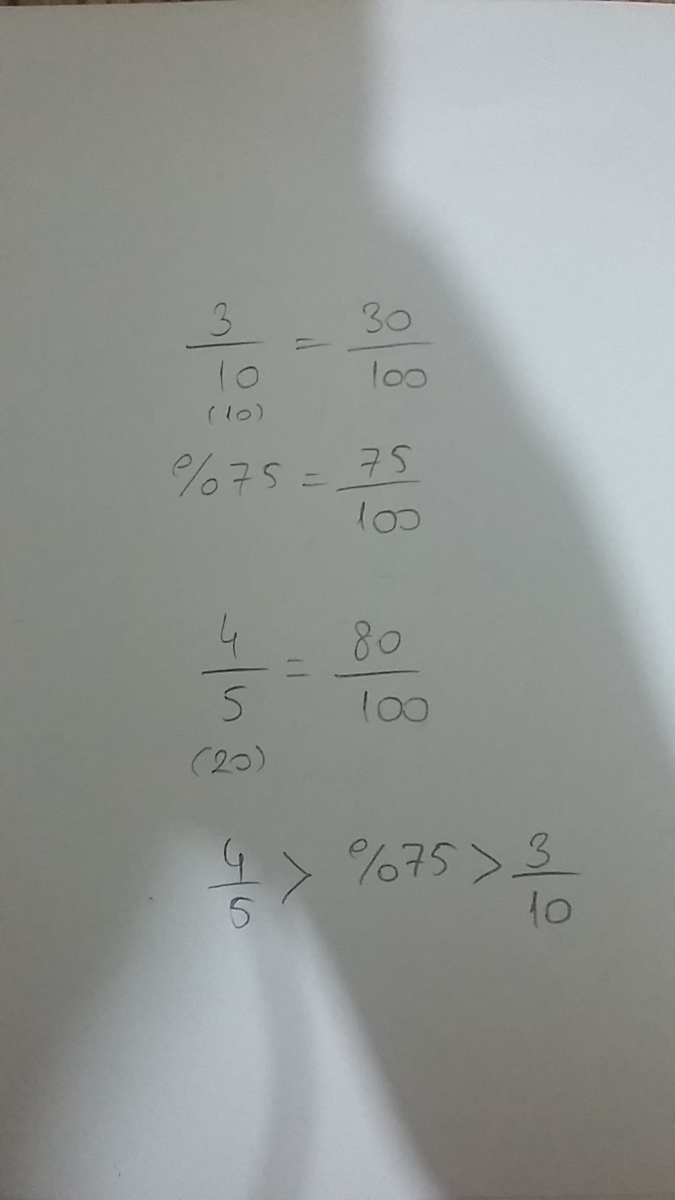 3/10 = 30/100
(10)
%75 = 75/100
4/5 = 80/100
(20)
4/5 > %75 > 3/10